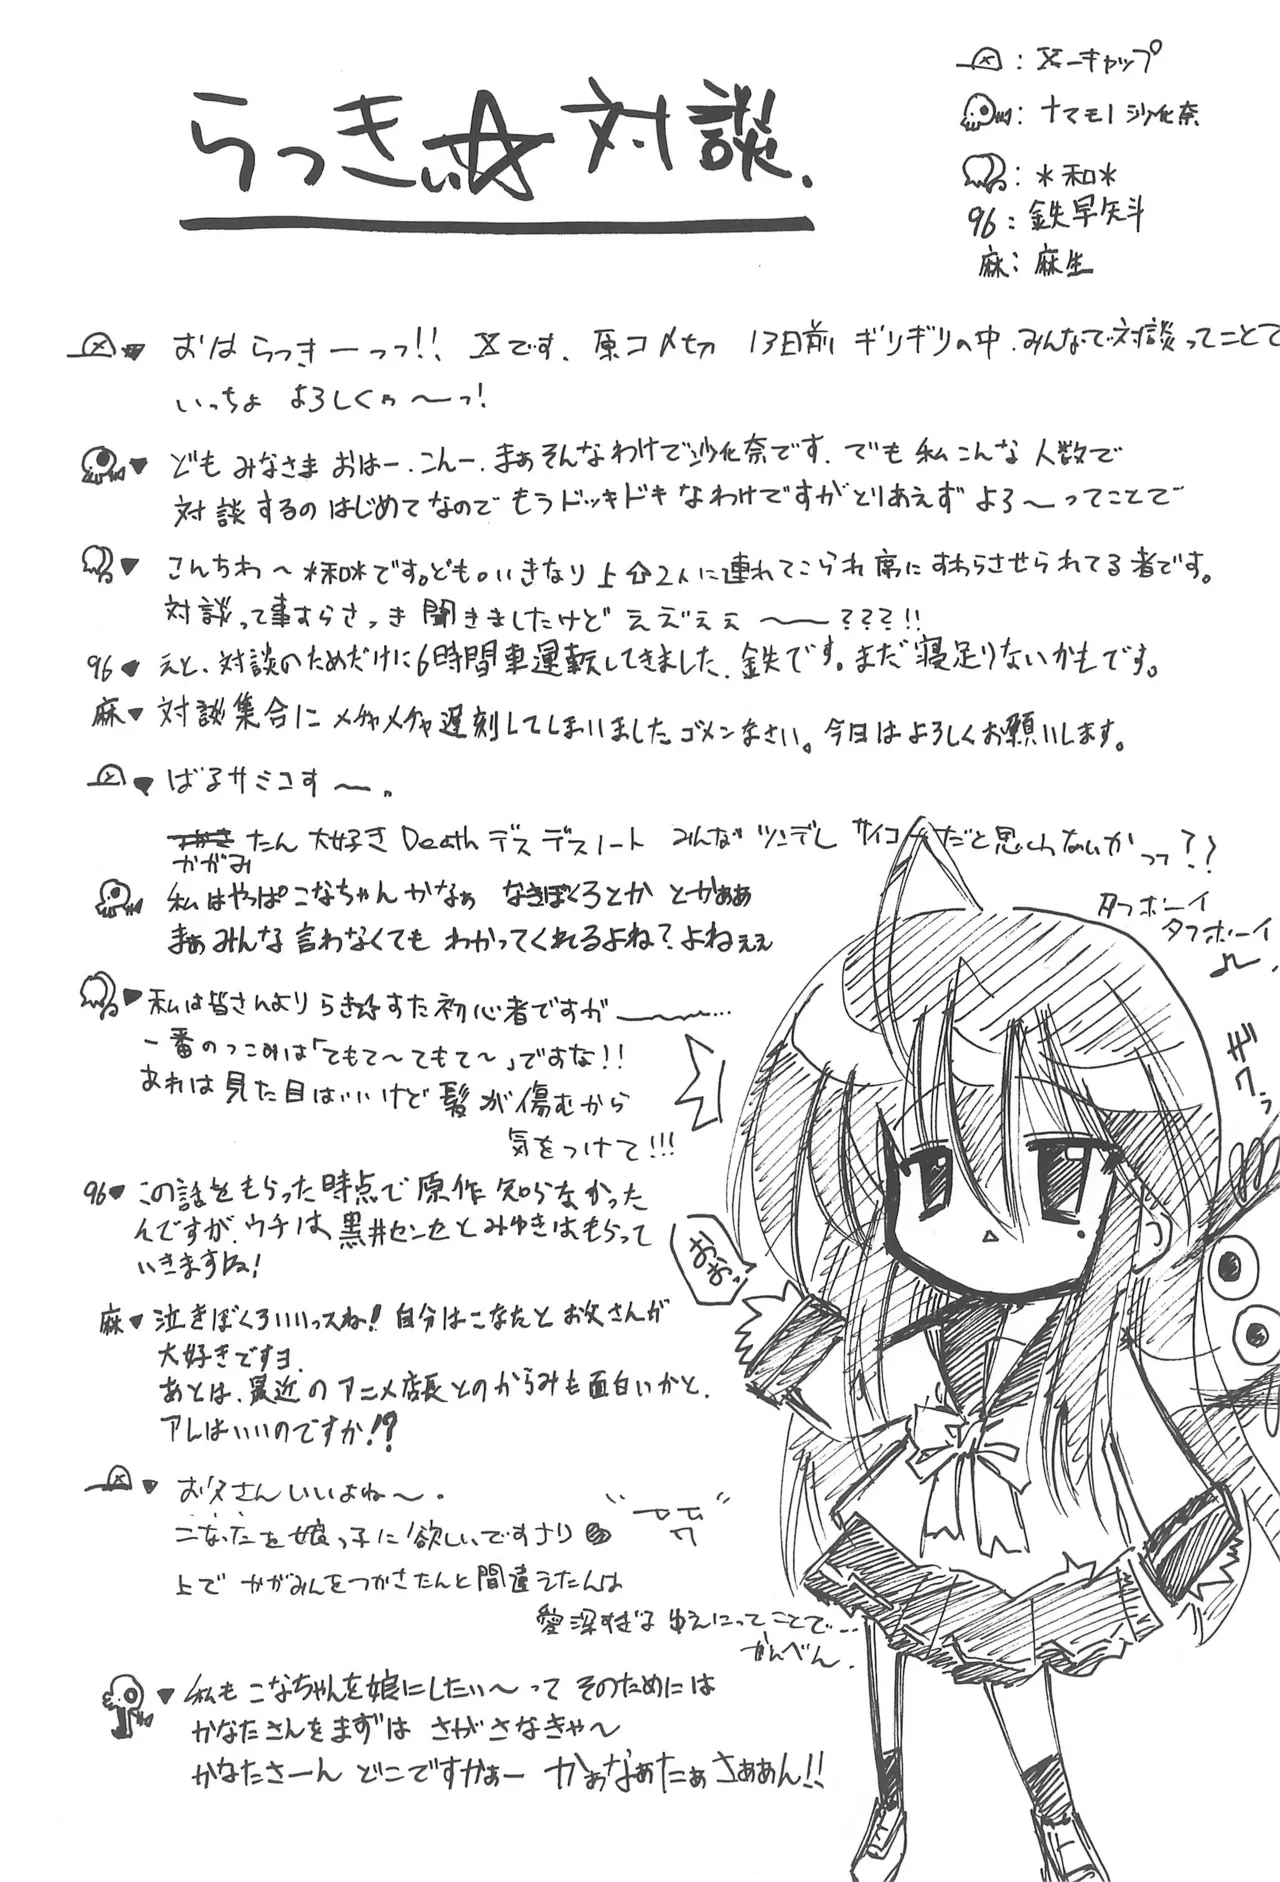 らっきぃ☆対談.
: X-キャップ
: ナマモノ沙化奈
: *和*
96: 鉄早矢斗
麻: 麻生
♥ おはらっきーっっ!! Xです. 原コメ切 13日前 ギリギリの中.みんなで対談ってことで
いっちょ よろしくぅ〜っ!
♥ ども みなさま おはー.こんー.まぁそんなわけで沙化奈です. でも 私こんな 人数で
対談するの はじめてなので もうドッキドキ なわけですがとりあえず よろ〜ってことで
♥ こんちわ〜*和*です。ども。いきなり 上の2人に連れてこられ 席に すわらさせられてる者です。
対談って事すらさっき 聞きましたけど ええ゛ぇぇ 〜〜???!!
96♥ えと、対談のためだけに6時間車運転してきました. 鉄です。まだ 寝足りないかもです。
麻♥ 対談集合に メチャメチャ遅刻してしまいました.ゴメンなさい。今日はよろしくお願いします。
♥ ばるサミコす〜.
かがみ たん 大好き Death デス デスノート みんな ツンデレ サイコーだと思わないかっっ??
♥ 私はやっぱ こなちゃん かなぁ なきぼくろとか とかぁぁ
まぁみんな 言わなくても わかってくれるよね?よねぇぇ
タフボーイ
タフボーイ♪.
♥ 私は皆さんより らき☆すた 初心者ですが 〜〜...
一番のつっこみは「てもて〜てもて〜」ですな!!
あれは 見た目はいいけど 髪が傷むから
気をつけて!!!
96♥ この話をもらった時点で 原作 知らなかった
んですが、ウチは、黒井センセと みゆきはもらって
いきますね!
おぉっ
麻♥ 泣きぼくろいいっスね! 自分はこなたと お父さんが
大好きですヨ.
あとは、最近のアニメ店長とのからみも面白いかと、
アレはいいのですか!?
♥ お父さんいいよね〜.
こなたを 娘っ子に 欲しいですナリ
上で かがみんをつかさたんと間違えたんは
愛深すぎる ゆえにってことで...
かんべん.
♥ 私も こなちゃんを娘にしたい〜って そのためには
かなたさんをまずは さがさなきゃ〜
かなたさーん どこですかぁー かぁなぁたぁ さぁぁん!!